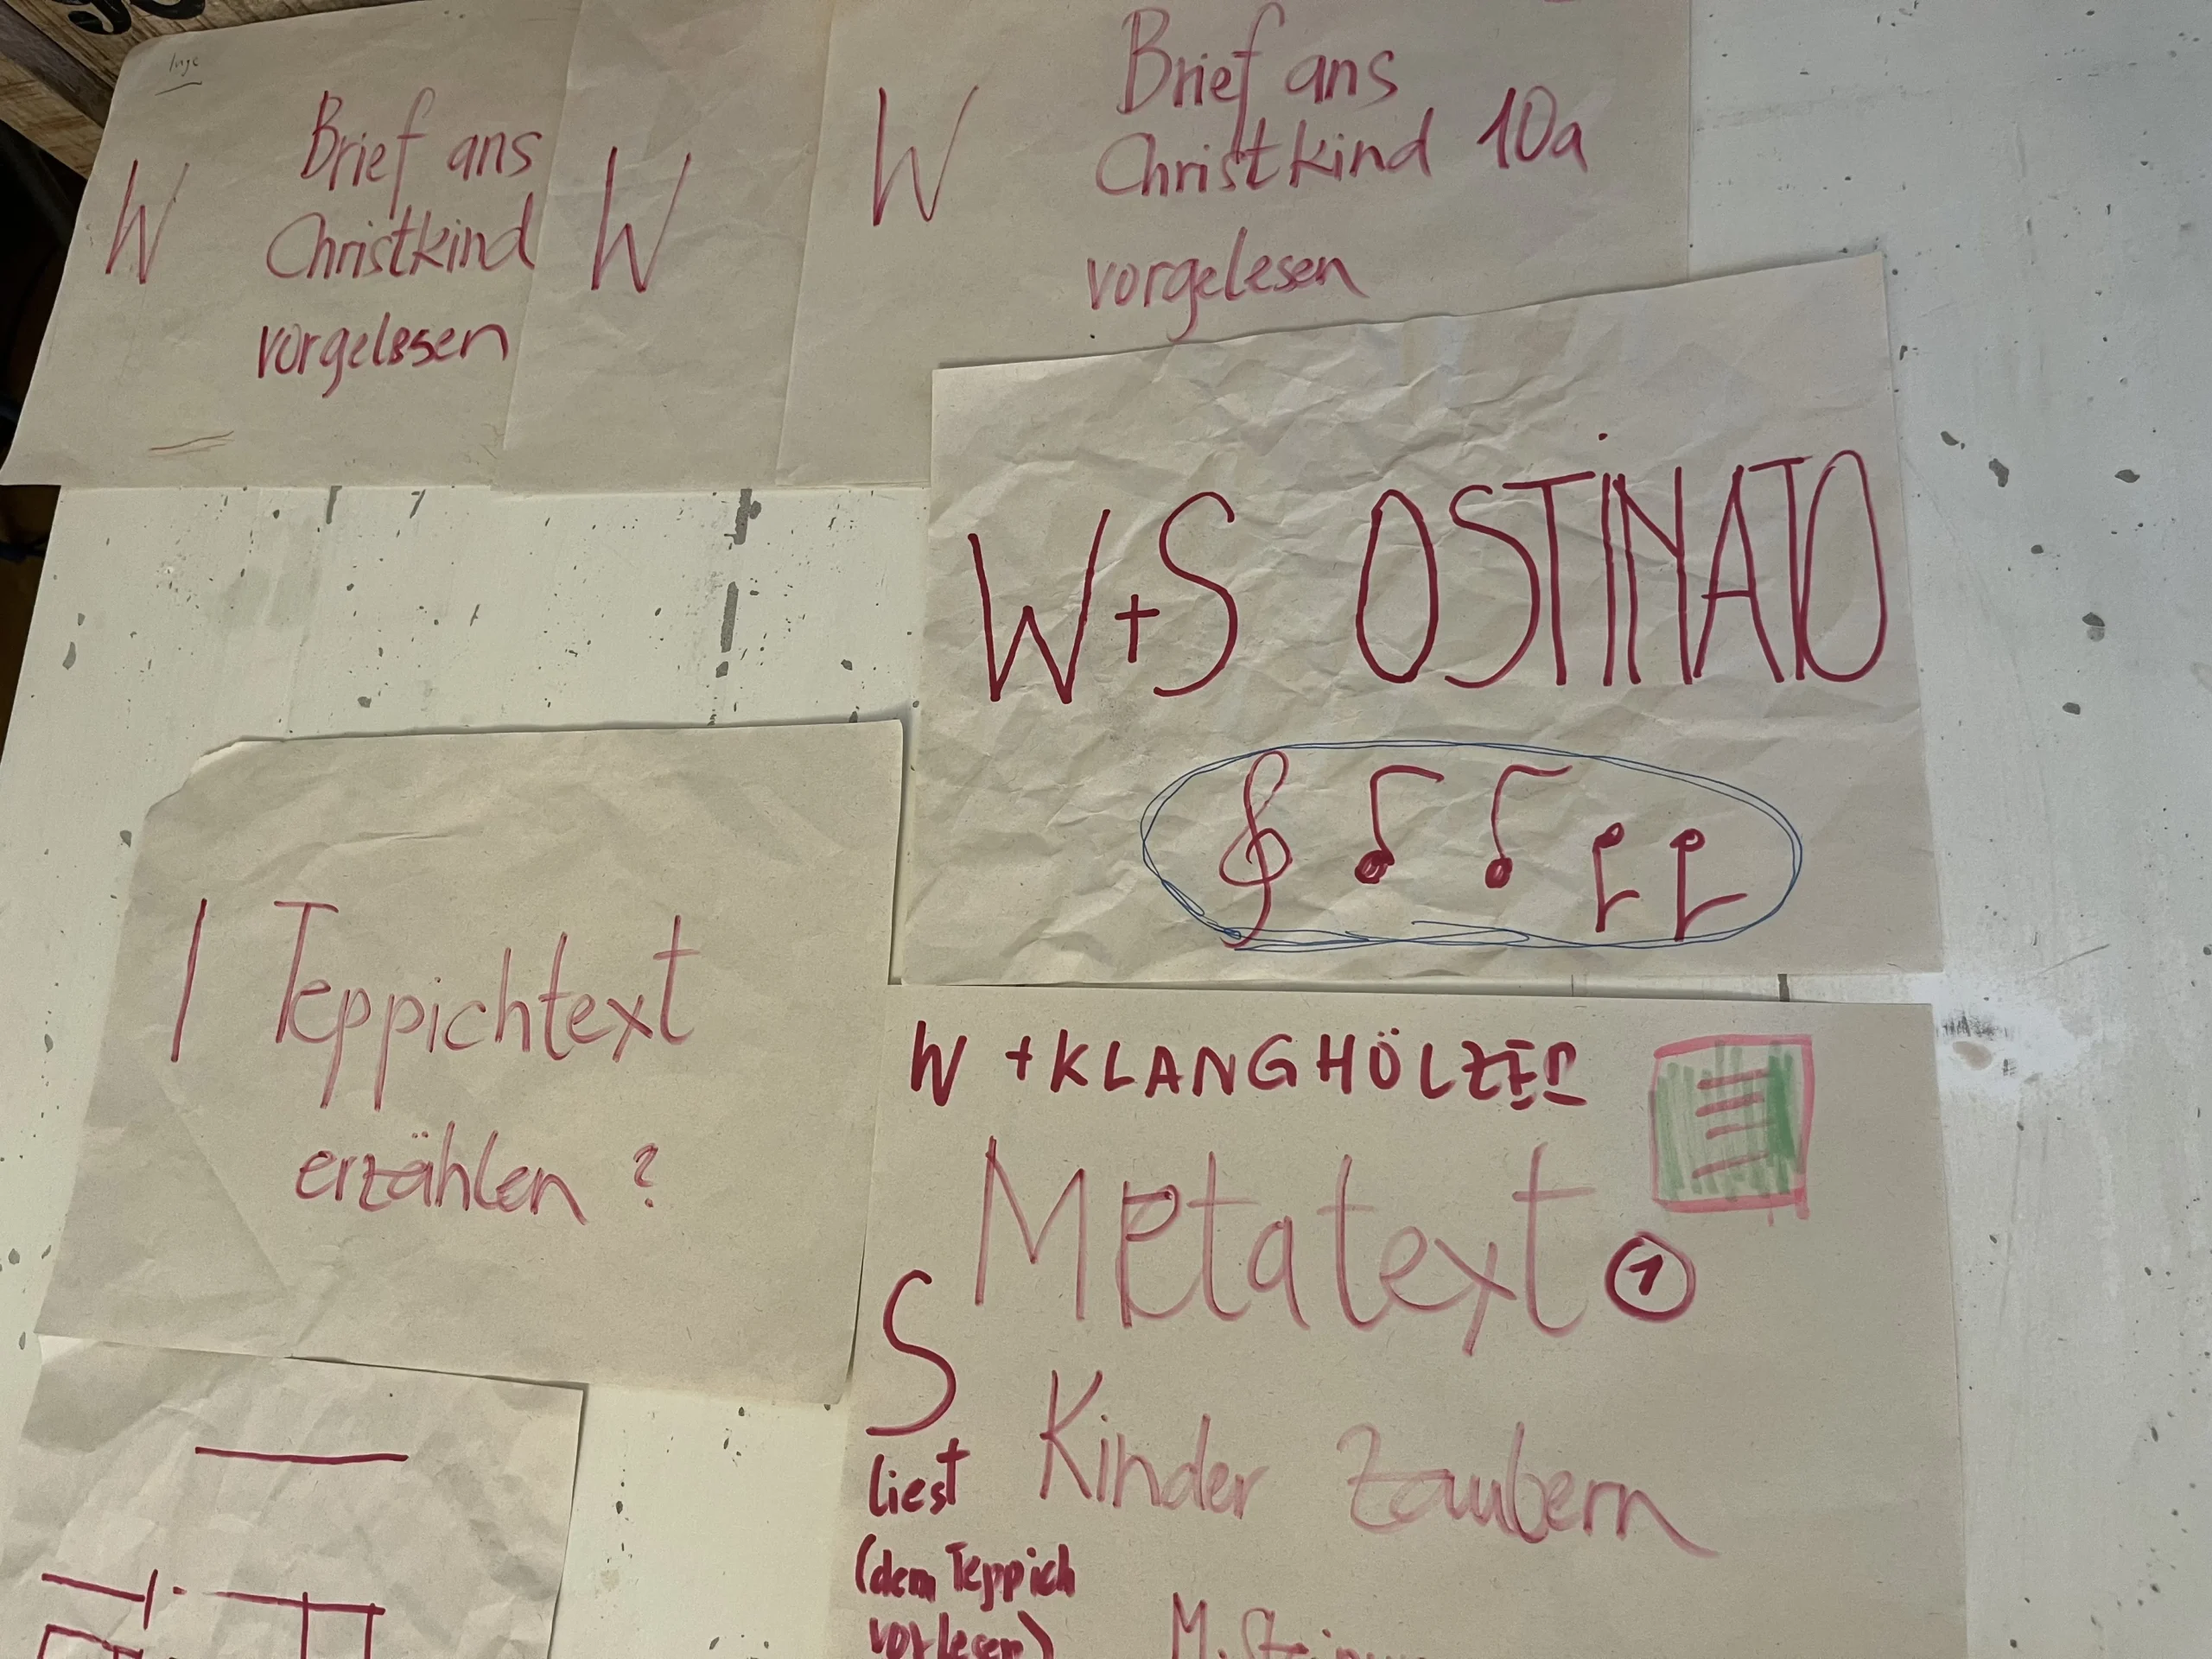 Inge
W Brief ans
Christkind
vorgelesen
W
W Brief ans
Christkind 10a
vorgelesen
W+S OSTINATO
I Teppichtext
erzählen ?
W + KLANGHÖLZER
Metatext 1
S
liest
(dem Teppich
vorlesen)
Kinder zaubern